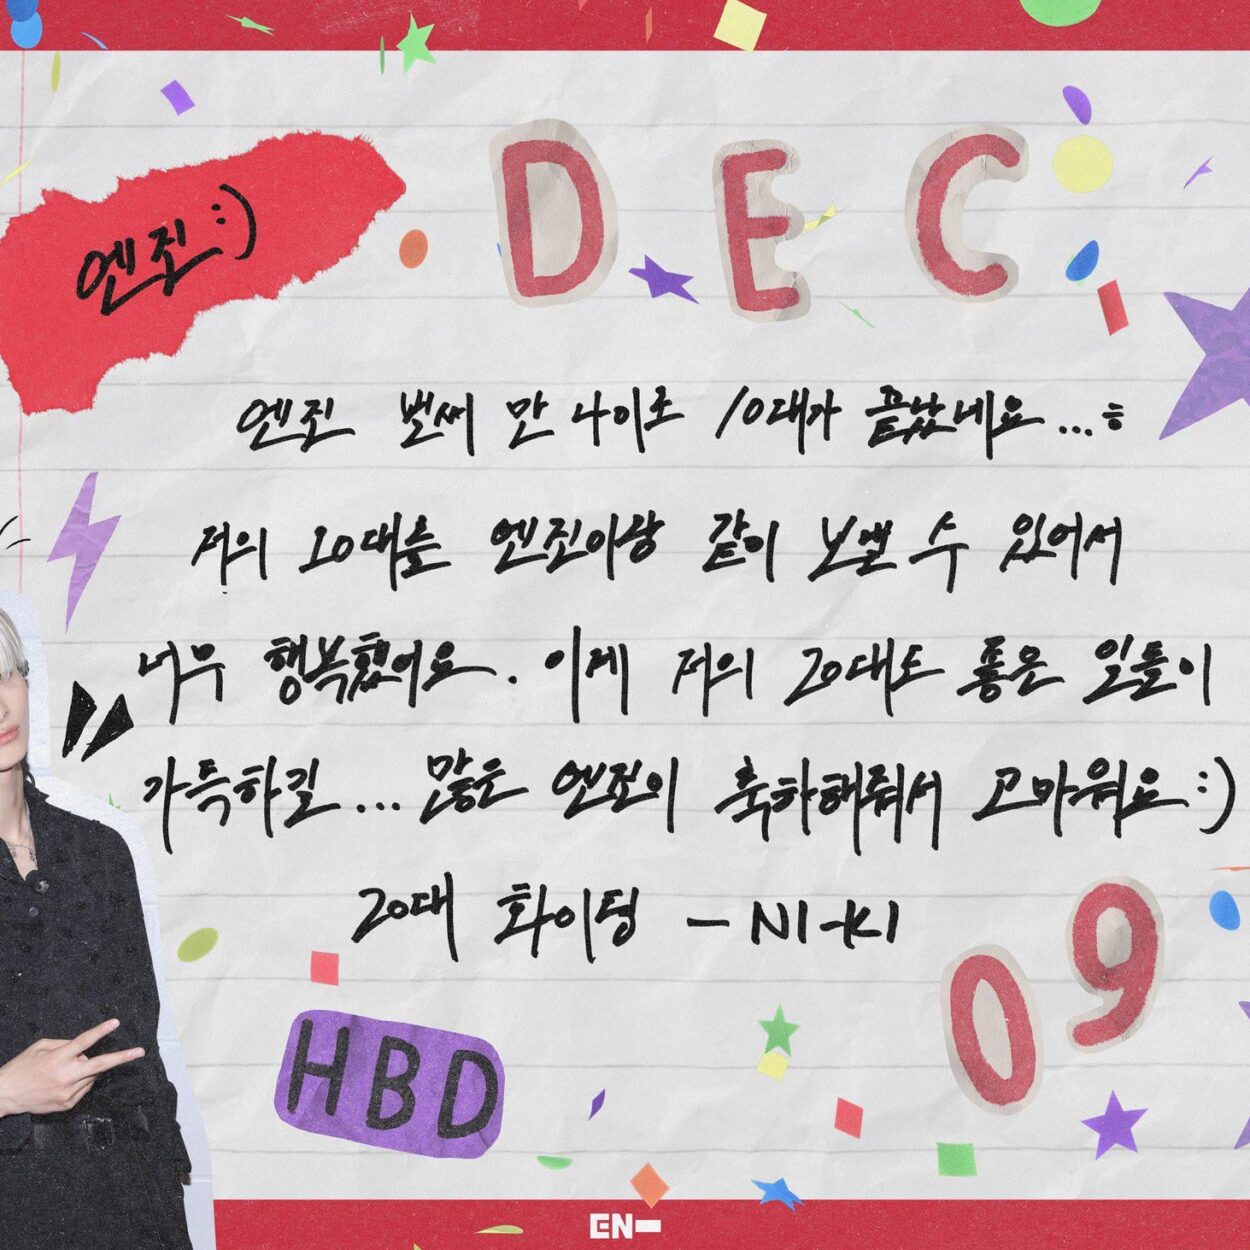 DEC
엔진 :)
엔진 벌써 만 나이로 10대가 끝났네요...ㅎ
저의 10대를 엔진이랑 같이 보낼 수 있어서
너무 행복했어요. 이제 저의 20대도 좋은 일들이
가득하길... 많은 엔진이 축하해줘서 고마워요 :)
20대 화이팅 - NI-KI
09
HBD
EN-